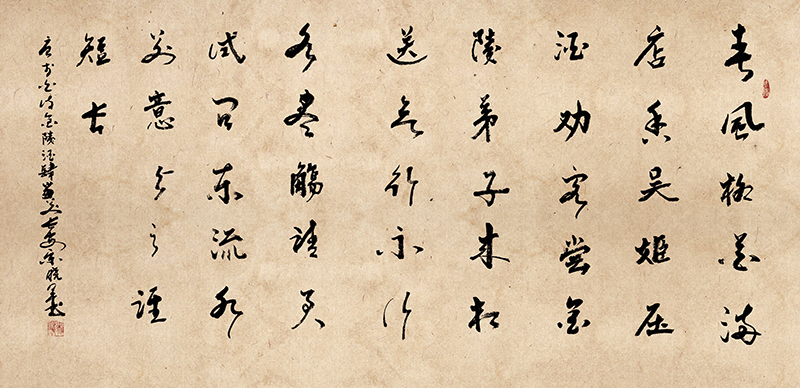 春風柳花满
店香吴姬压
酒劝客尝金
陵弟子来相
送欲行不行
各盡觴請君
试问东流水
别意与之谁
短长
李白诗金陵酒肆留别长安